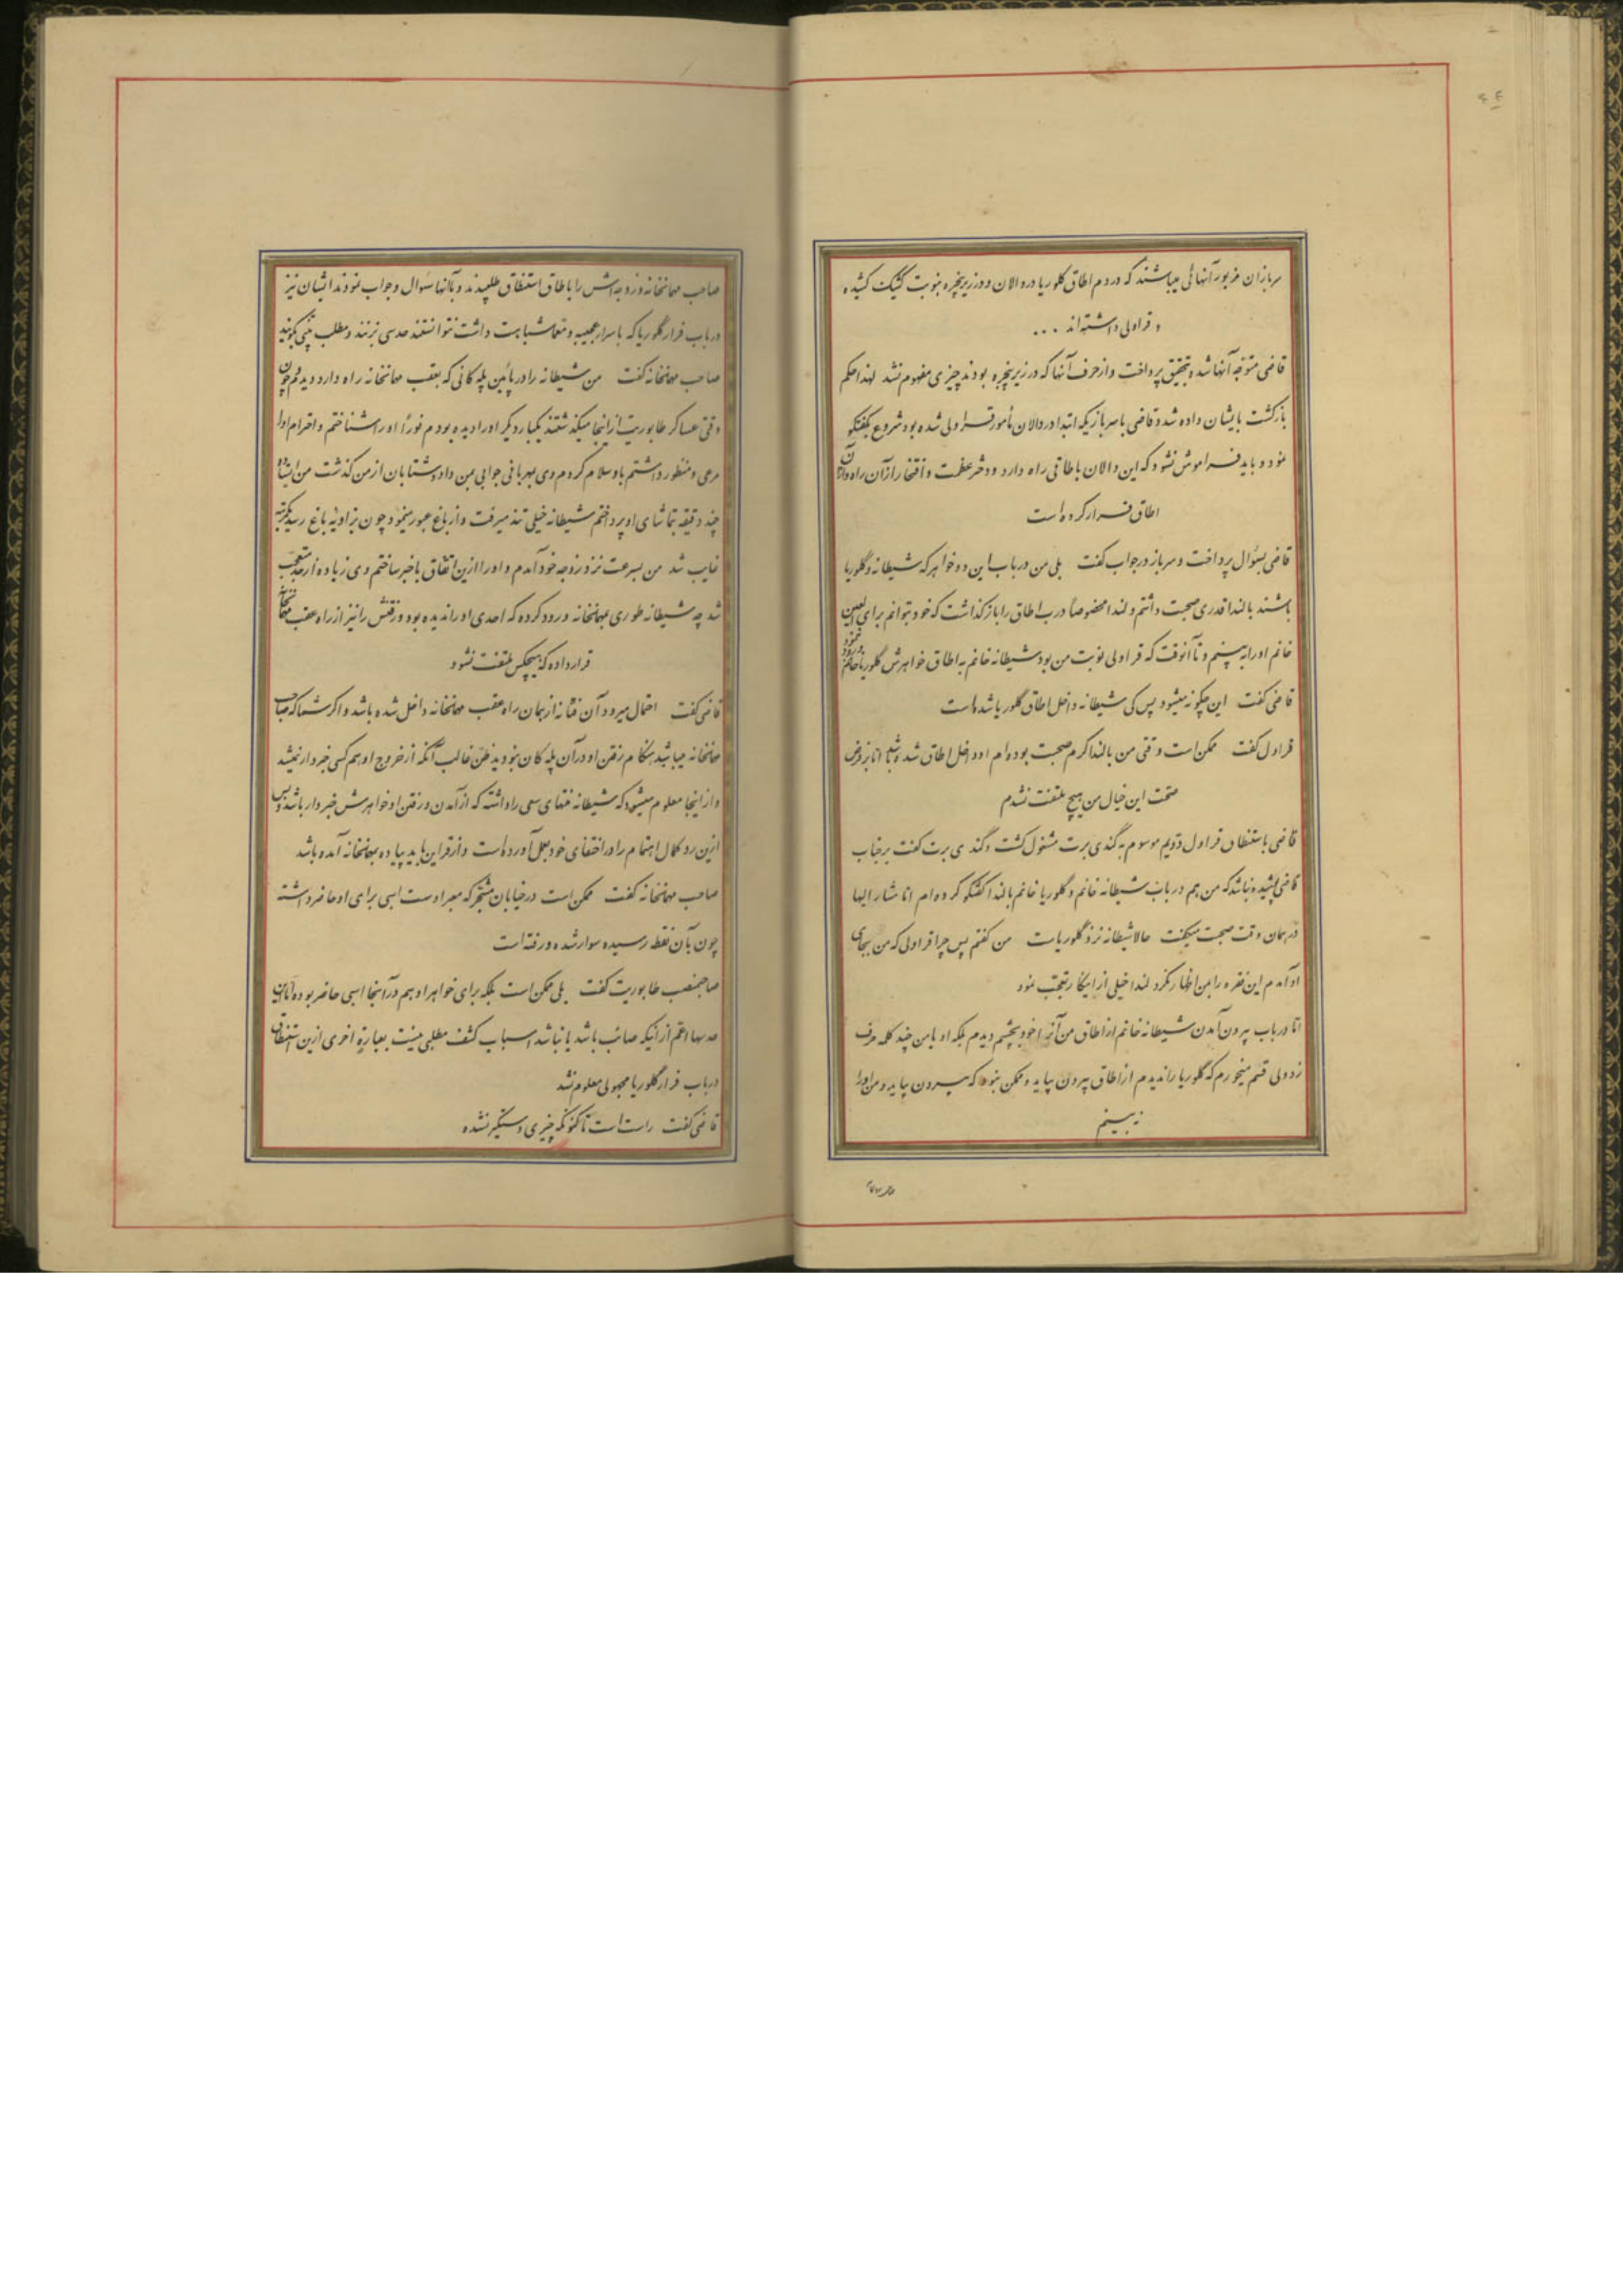 سربازان مزبور آنهائی میباشند که در دم اطاق گلوریا در دالان و در زیر پنجره بنوبت کشیک کشیده
و قراولی داشته‌اند ...
قاضی متوجه آنها شده بتحقیق پرداخت و از حرف آنها که در زیر پنجره بودند چیزی مفهوم نشد لهذا حکم
بازگشت بایشان داده شد و قاضی با سربازیکه ابتدا در دالان مأمور قراولی شده بود شروع بگفتگو
نمود و باید فراموش نشود که این دالان باطاقی راه دارد و دختر عظمت و افتخار از آن راه و از آن
اطاق فرار کرده است
قاضی بسؤال پرداخت و سرباز در جواب گفت بلی من در باب این دو خواهر که شیطانه و گلوریا
باشند با لندا قدری صحبت داشتم و لندا مخصوصاً درب اطاق را باز گذاشت که خود بتوانم برای العین
خانم او را به بینم و تا آنوقت که قراولی نوبت من بود شیطانه خانم به اطاق خواهرش گلوریا خانم ورود ننمود
قاضی گفت این چگونه میشود پس کی شیطانه داخل اطاق گلوریا شده است
قراول گفت ممکن است وقتی من با لندا گرم صحبت بوده‌ام او داخل اطاق شده باشد اما بر فرض
صحت این خیال من هیچ ملتفت نشدم
قاضی باستنطاق قراول دویم موسوم به گندی برت مشغول گشت و گندی برت گفت بر جناب
قاضی پوشیده نباشد که من هم در باب شیطانه خانم و گلوریا خانم با لندا گفتگو کرده‌ام اما مشار الیها
در همان وقت صحبت میگفت حالا شیطانه نزد گلوریاست من گفتم پس چرا قراولی که من بجای
او آمدم این فقره را بمن اظهار نکرد لندا خیلی از اینکار تعجب نمود
اما در باب بیرون آمدن شیطانه خانم از اطاق من آنرا خود بچشم دیدم بلکه او با من چند کلمه حرف
زد ولی قسم میخورم که گلوریا را ندیدم از اطاق بیرون بیاید و ممکن نبود که بیرون بیاید و من او را
نه بینم
صاحب مهمانخانه و زوجه‌اش را باطاق استنطاق طلبیدند و با آنها سؤال و جواب نمودند ایشان نیز
در باب فرار گلوریا که باسرار عجیبه و معما شباهت داشت نتوانستند حدسی بزنند و مطلب بیّنی بگویند
صاحب مهمانخانه گفت من شیطانه را در پائین پله کانی که بعقب مهمانخانه راه دارد دیدم چون
وقتی عساکر طابوریت از اینجا میگذشتند یکبار دیگر او را دیده بودم فوراً او را شناختم و احترام او را
مرعی و منظور داشتم باو سلام کردم وی بمهربانی جوابی بمن داد و شتابان از من گذشت من ایستاده
چند دقیقه بتماشای او پرداختم شیطانه خیلی تند میرفت و از باغ عبور مینمود چون بزاویه باغ رسید یکمرتبه
غایب شد من بسرعت نزد زوجه خود آمدم و او را ازین اتفاق باخبر ساختم وی زیاده از حد متعجب
شد چه شیطانه طوری بمهمانخانه ورود کرده که احدی او را ندیده بود و رفتنش را نیز از راه عقب مهمانخانه
قرار داده که هیچکس ملتفت نشود
قاضی گفت احتمال میرود آن فتانه از همان راه عقب مهمانخانه داخل شده باشد و اگر شما که صاحب
مهمانخانه میباشید هنگام رفتن او در آن پله کان نبودید ظن غالب آنکه از خروج او هم کسی خبردار نمیشد
و از اینجا معلوم میشود که شیطانه منتهای سعی را داشته که از آمدن و رفتن او خواهرش خبردار باشد و بس
ازین رو کمال اهتمام را در اختفای خود بعمل آورده است و از قراین باید پیاده بمهمانخانه آمده باشد
صاحب مهمانخانه گفت ممکن است در خیابان مشجر که معبر اوست اسبی برای او حاضر داشته
چون بآن نقطه رسیده سوار شده و رفته است
صاحبمنصب طابوریت گفت بلی ممکن است بلکه برای خواهر او هم در آنجا اسبی حاضر بوده اما این
حدسها اعم از اینکه صائب باشد یا نباشد اسباب کشف مطلبی نیست بعباره اخری ازین استنطاق
در باب فرار گلوریا مجهولی معلوم نشد
قاضی گفت راست است تا کنون که چیزی دستگیر نشده